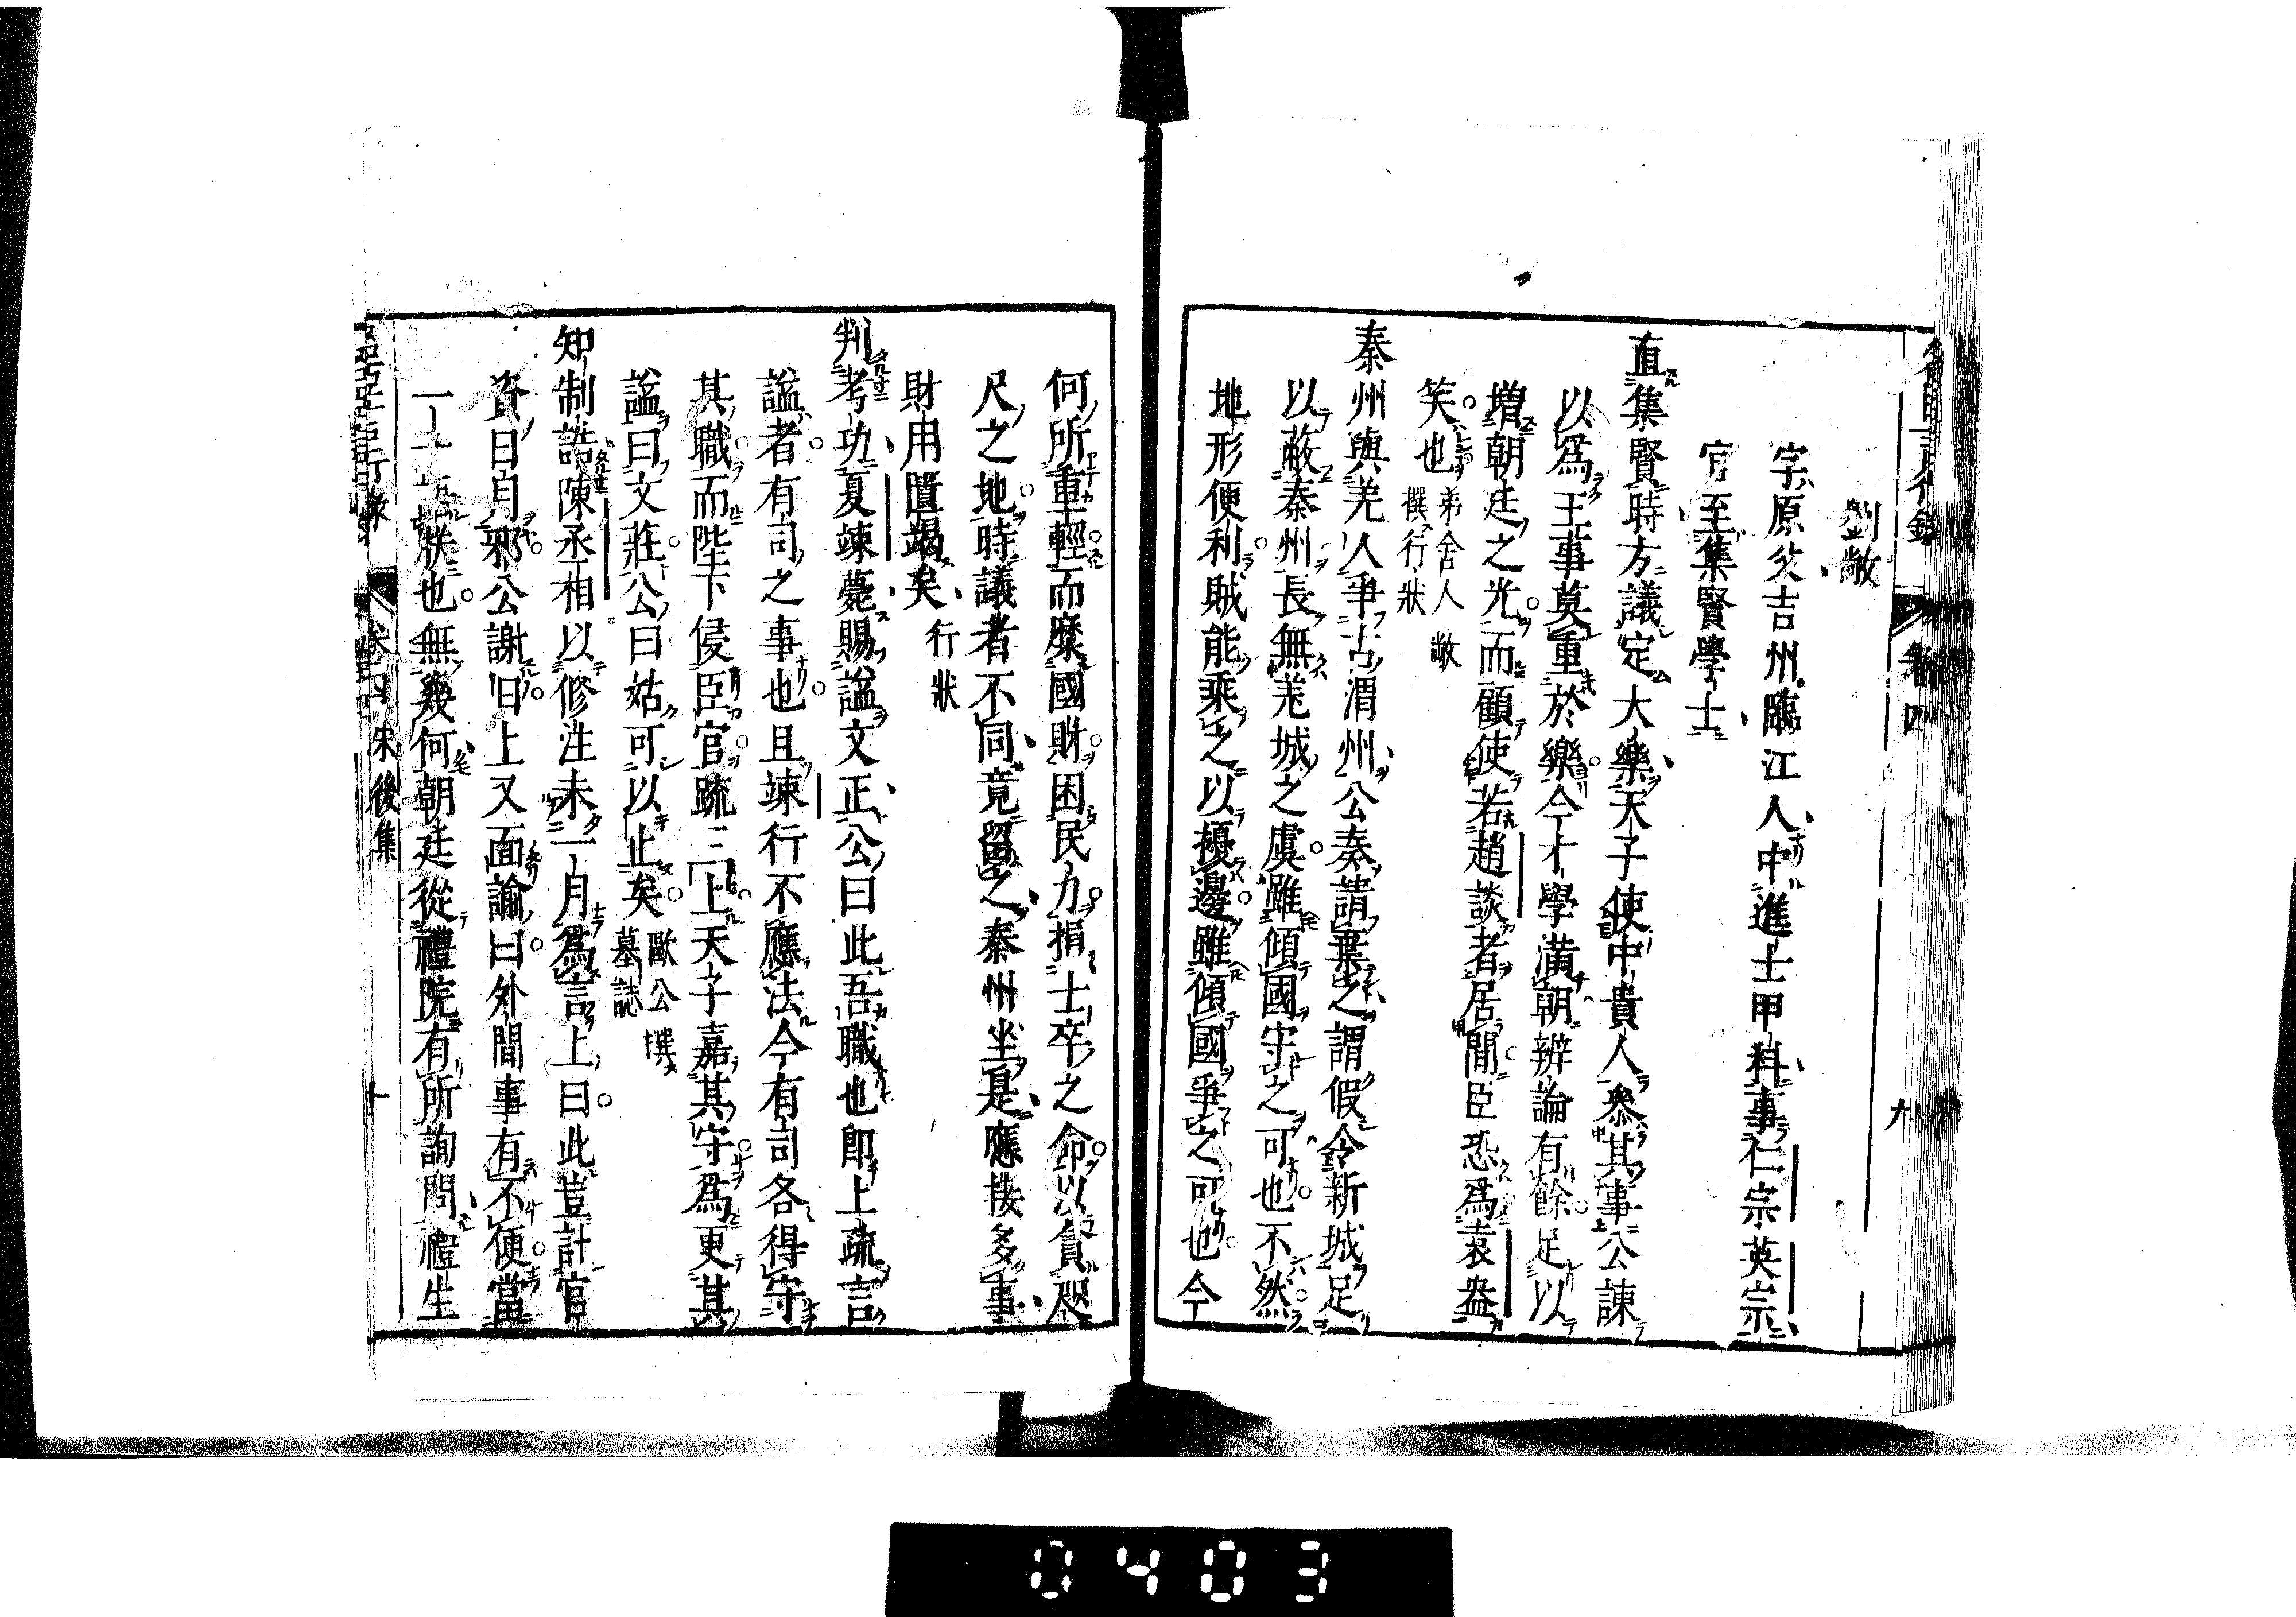 劉敞
字原父吉州臨江人中進士甲科事仁宗英宗
官至集賢學士
直集賢時方議定大樂天子使中貴人參其事公諫
以爲王事莫重於樂今才學滿朝辨論有餘足以
增朝廷之光而顧使若趙談者居間臣恐爲袁盎
笑也 弟舍人敞
撰行狀
秦州與羌人爭古渭州公奏請棄之謂假令新城足
以蔽秦州長無羌城之虞雖傾國守之可也不然
地形便利賊能乘之以擾邊雖傾國爭之可也今
何所重輕而糜國財困民力捐士卒之命以貪咫
尺之地時議者不同竟留之秦州坐是應接多事
財用匱竭矣 行狀
判考功夏竦薨賜謚文正公曰此吾職也卽上疏言
謚者有司之事也且竦行不應法今有司各得守
其職而陛下侵臣官疏三上天子嘉其守爲更其
謚曰文莊公曰姑可以止矣 歐公撰
墓誌
知制誥陳丞相以修注未一月爲言上曰此豈計官
資日月邪公謝曰上又面諭曰外間事有不便當
無幾何朝廷從禮院有所詢問禮生
卷四 宋後集
十
0403